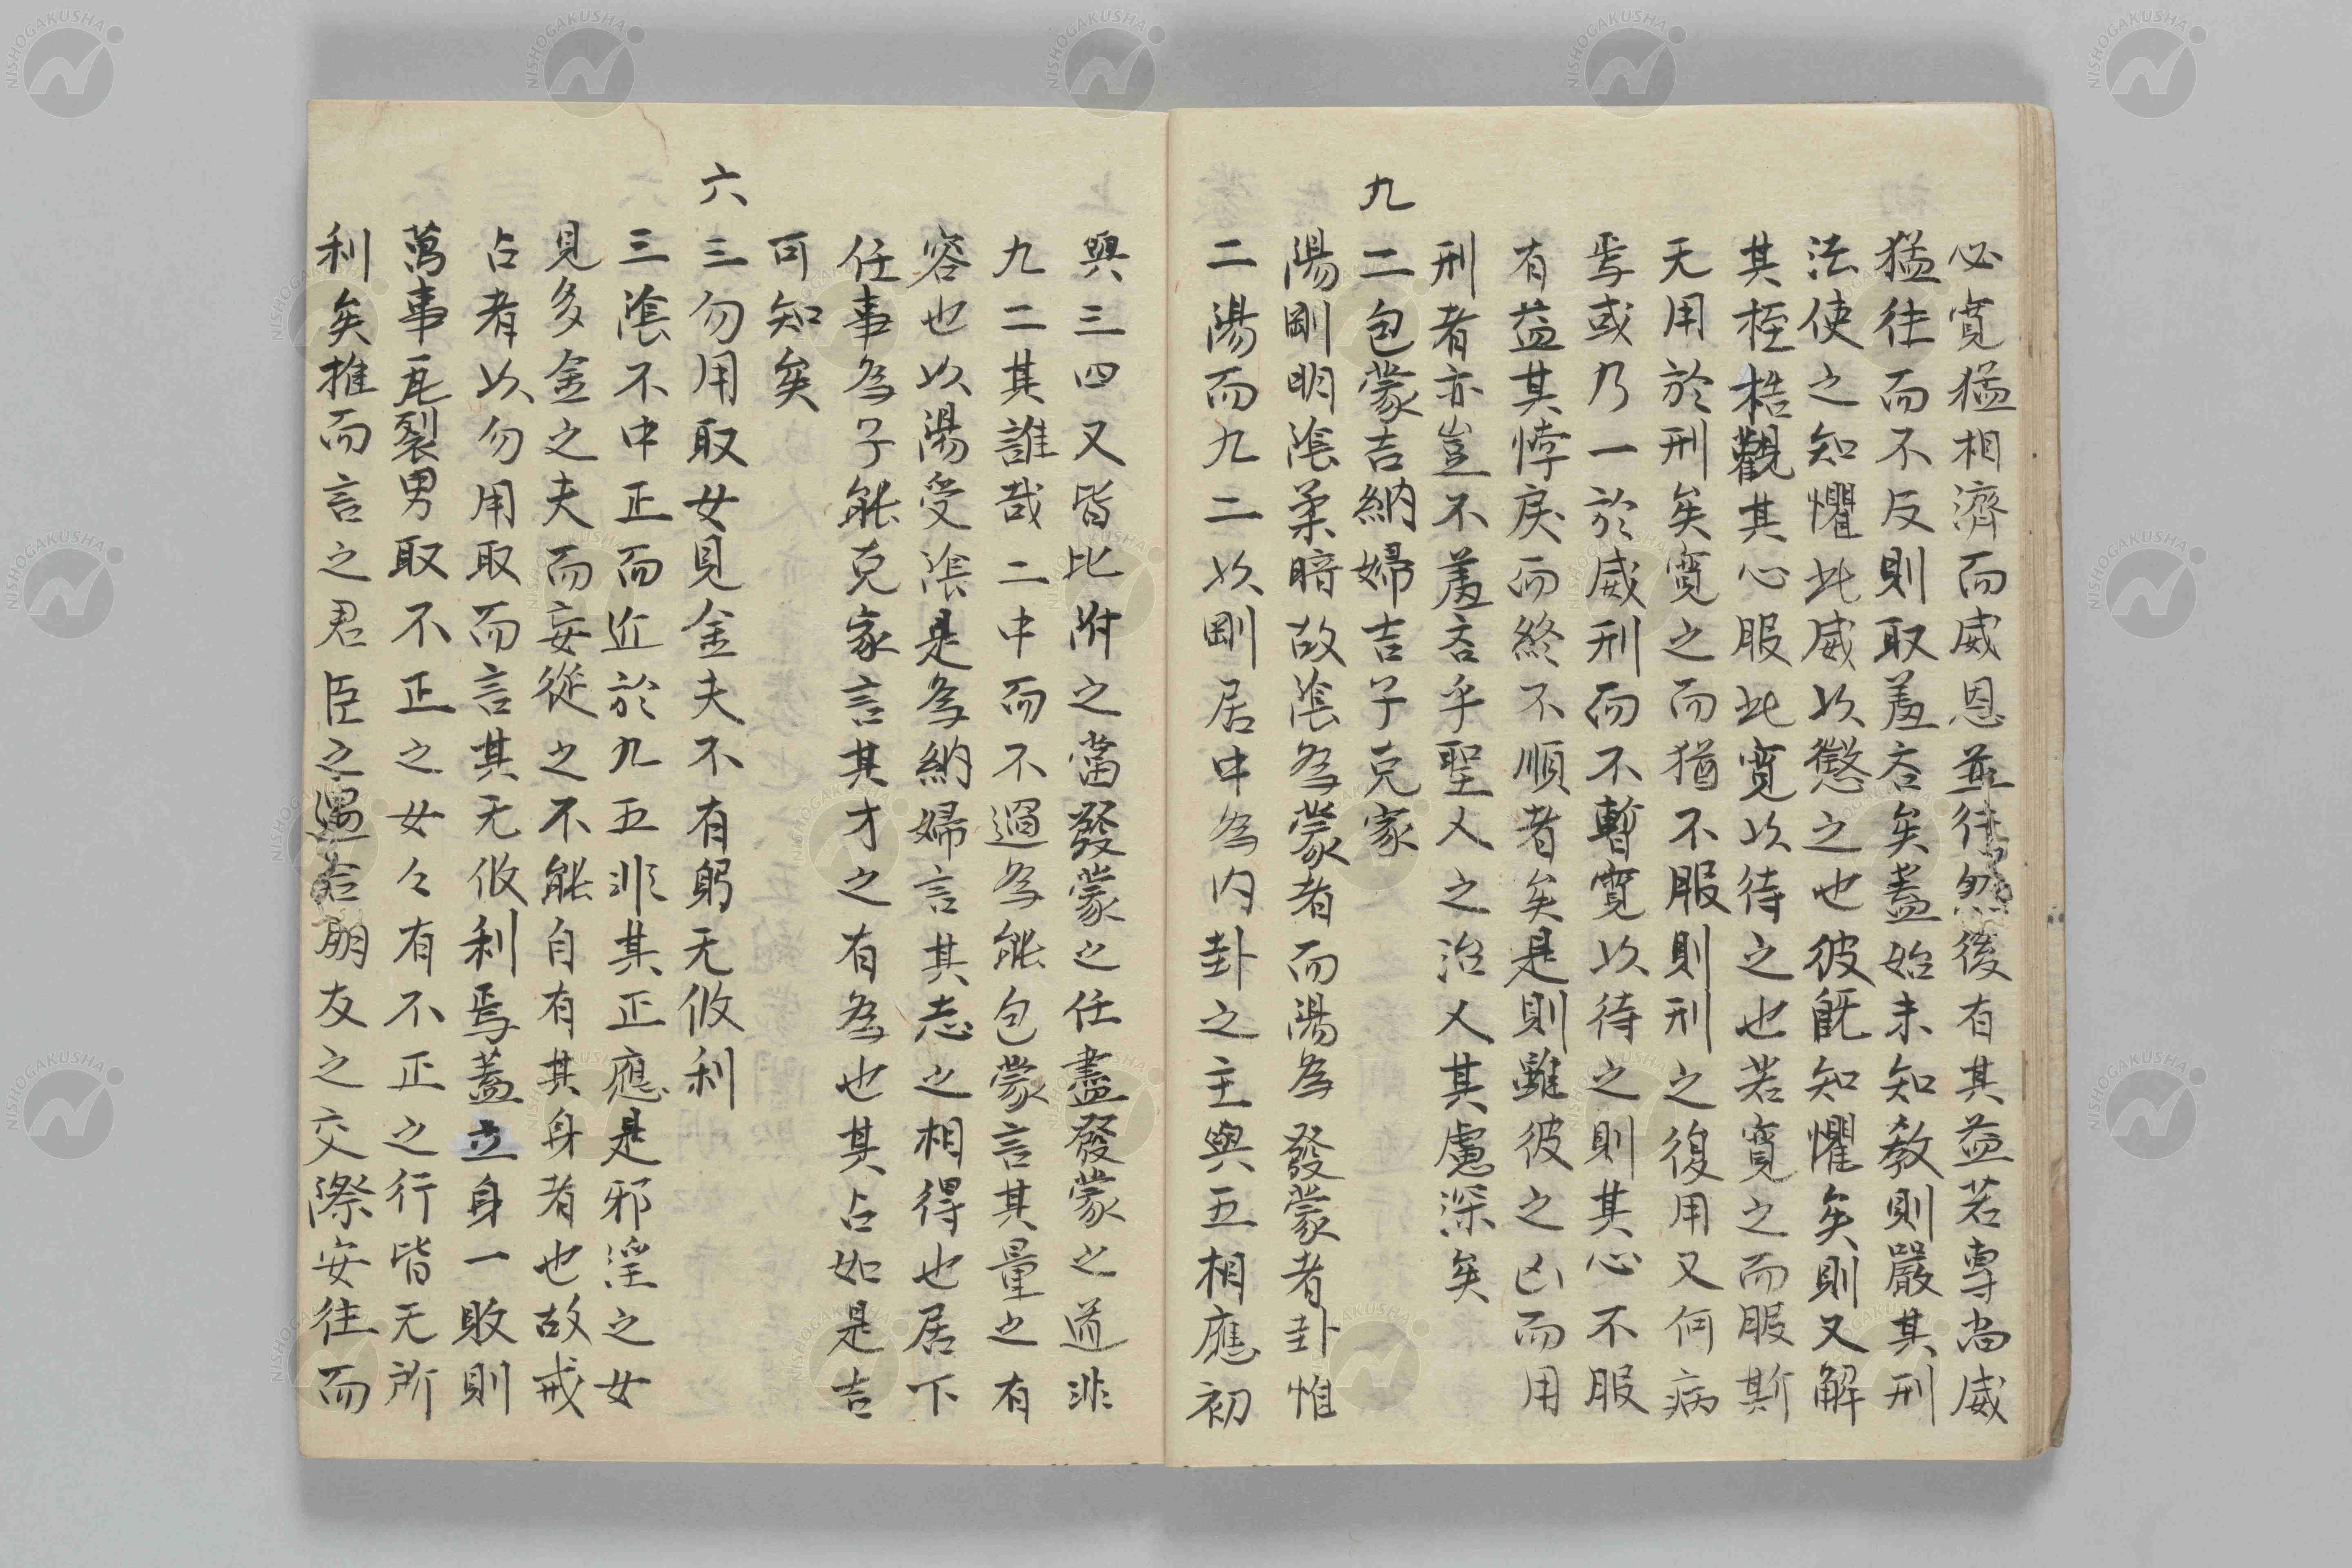 必寛猛相濟而威恩並往然後有其益若專尚威
猛往而不反則取羞吝矣蓋始未知教則嚴其刑
法使之知懼此威以懲之也彼既知懼矣則又解
其桎梏觀其心服此寛以待之也若寛之而服斯
无用於刑矣寛之而猶不服則刑之復用又何病
焉或乃一於威刑而不暫寛以待之則其心不服
有益其悖戾而終不順者矣是則雖彼之凶而用
刑者亦豈不羞吝乎聖人之治人其慮深矣
九二包蒙吉納婦吉子克家
陽剛明陰柔暗故陰為蒙者而陽為發蒙者卦惟
二陽而九二以剛居中為内卦之主與五相應初
與三四又皆比附之當發蒙之任盡發蒙之道非
九二其誰哉二中而不過為能包蒙言其量之有
容也以陽受陰是為納婦言其志之相得也居下
任事為子能克家言其才之有為也其占如是吉
可知矣
六三勿用取女見金夫不有躬无攸利
三陰不中正而近於九五非其正應是邪淫之女
見多金之夫而妄從之不能自有其身者也故戒
占者以勿用取而言其无攸利焉蓋立身一敗則
萬事瓦裂男取不正之女々有不正之行皆无所
利矣推而言之君臣之遇若朋友之交際妄往而
NISHOGAKUSHA